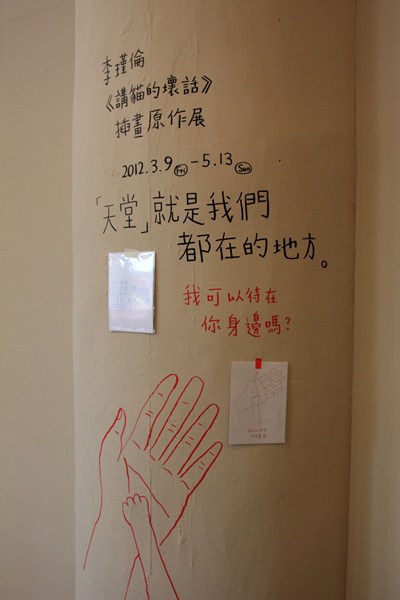 李瑾倫
《講貓的壞話》
插畫原作展
2012.3.9 Fri -5.13 Sun
「天堂」就是我們
都在的地方。
我可以待在
你身邊嗎?